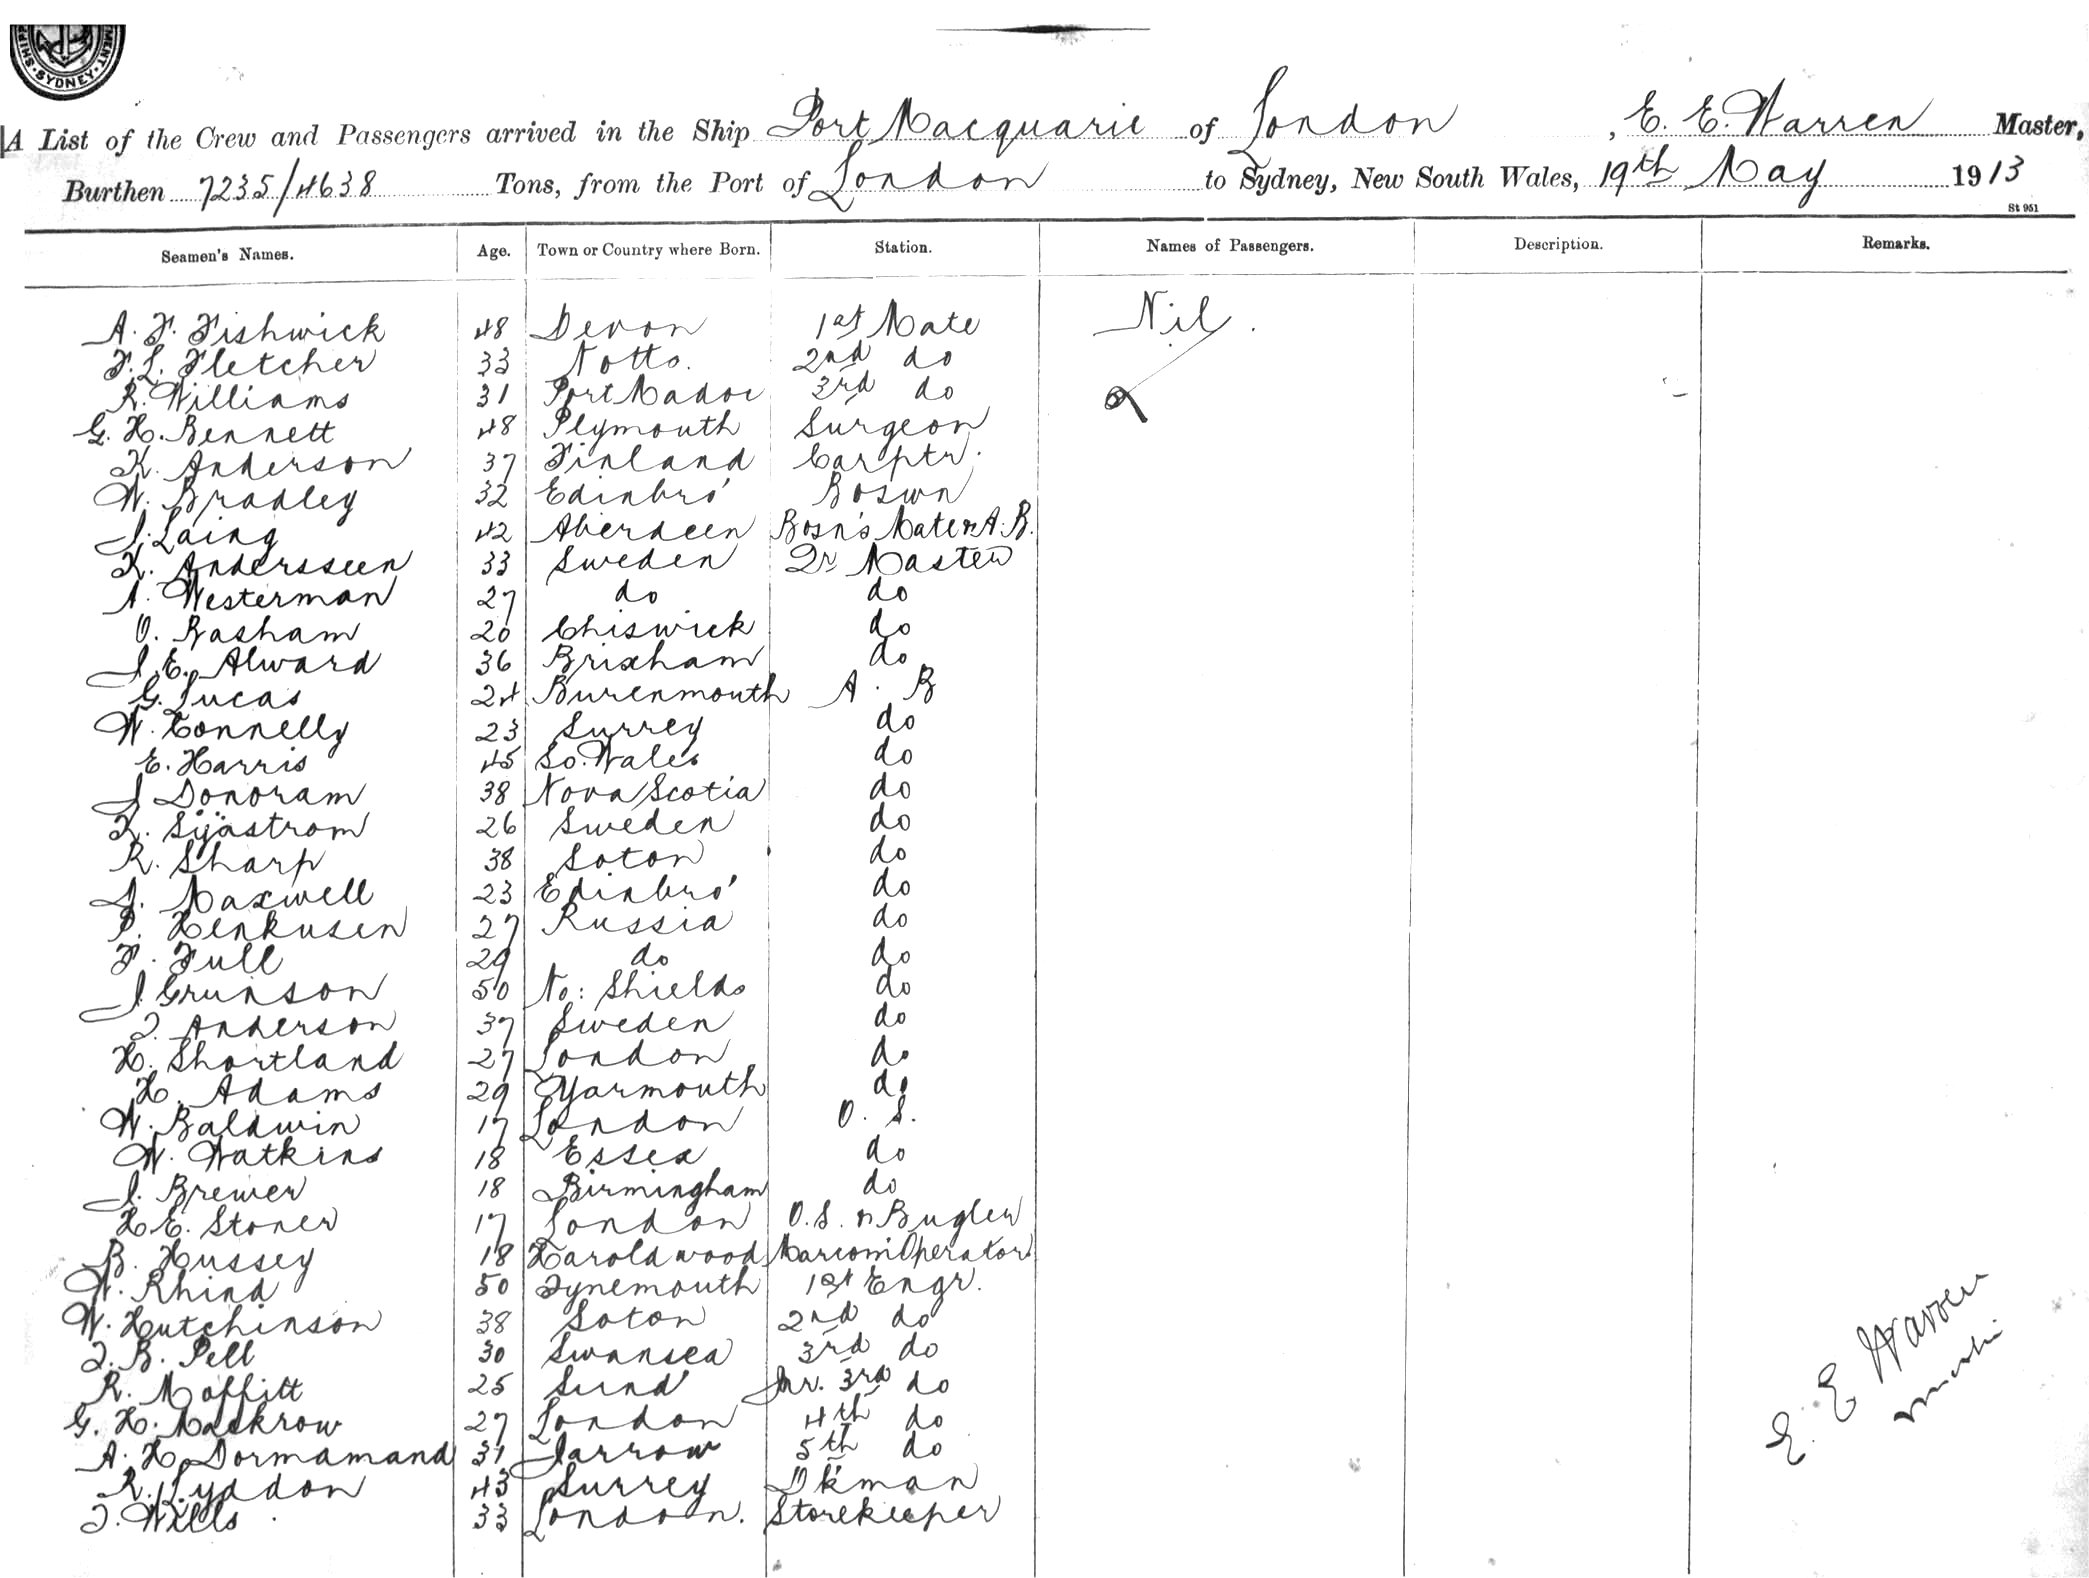 SHIPS · SYDNEY · MENT
A List of the Crew and Passengers arrived in the Ship Port Macquarie of London, E. E. Warren Master,
Burthen 7235/4638 Tons, from the Port of London to Sydney, New South Wales, 19th May 1913
St 951
Seamen's Names. Age. Town or Country where Born. Station. Names of Passengers. Description. Remarks.
A. F. Fishwick 48 Devon 1st Mate Nil.
F. L. Fletcher 33 Notts. 2nd do
R. Williams 31 Port Madoc 3rd do
G. H. Bennett 48 Plymouth Surgeon
K. Anderson 37 Finland Carptr.
W. Bradley 32 Edinbro' Boswn
J. Laing 42 Aberdeen Bosn's Mate & A. B.
K. Andersseen 33 Sweden Qr Master
A. Westerman 27 do do
O. Basham 20 Chiswick do
J. E. Alward 36 Brixham do
G. Lucas 24 Burenmouth A. B
W. Connelly 23 Surrey do
E. Harris 45 So. Wales do
J Donoram 38 Nova Scotia do
K. Sÿastrom 26 Sweden do
R. Sharp 38 Soton do
J. Maxwell 23 Edinbro' do
P. Henkusen 27 Russia do
F. Full 29 do do
J. Grunson 50 No: Shields do
J. Anderson 37 Sweden do
H. Shortland 27 London do
H. Adams 29 Yarmouth do
W. Baldwin 17 London O. S.
W. Watkins 18 Essex do
J. Brewer 18 Birmingham do
H E. Stoner 17 London O. S. & Bugler
B. Hussey 18 Harold wood Marconi Operator
W. Rhind 50 Tynemouth 1st Engr.
W. Hutchinson 38 Soton 2nd do
J. B. Pell 30 Swansea 3rd do
R. Moffitt 25 Sund' Jnr. 3rd do
G. H. Maskrow 27 London 4th do
A. H. Dormamand 31 Jarrow 5th do
R. Lyddon 43 Surrey Dkman
J. Wills 33 London. Storekeeper
E. E Warren
master